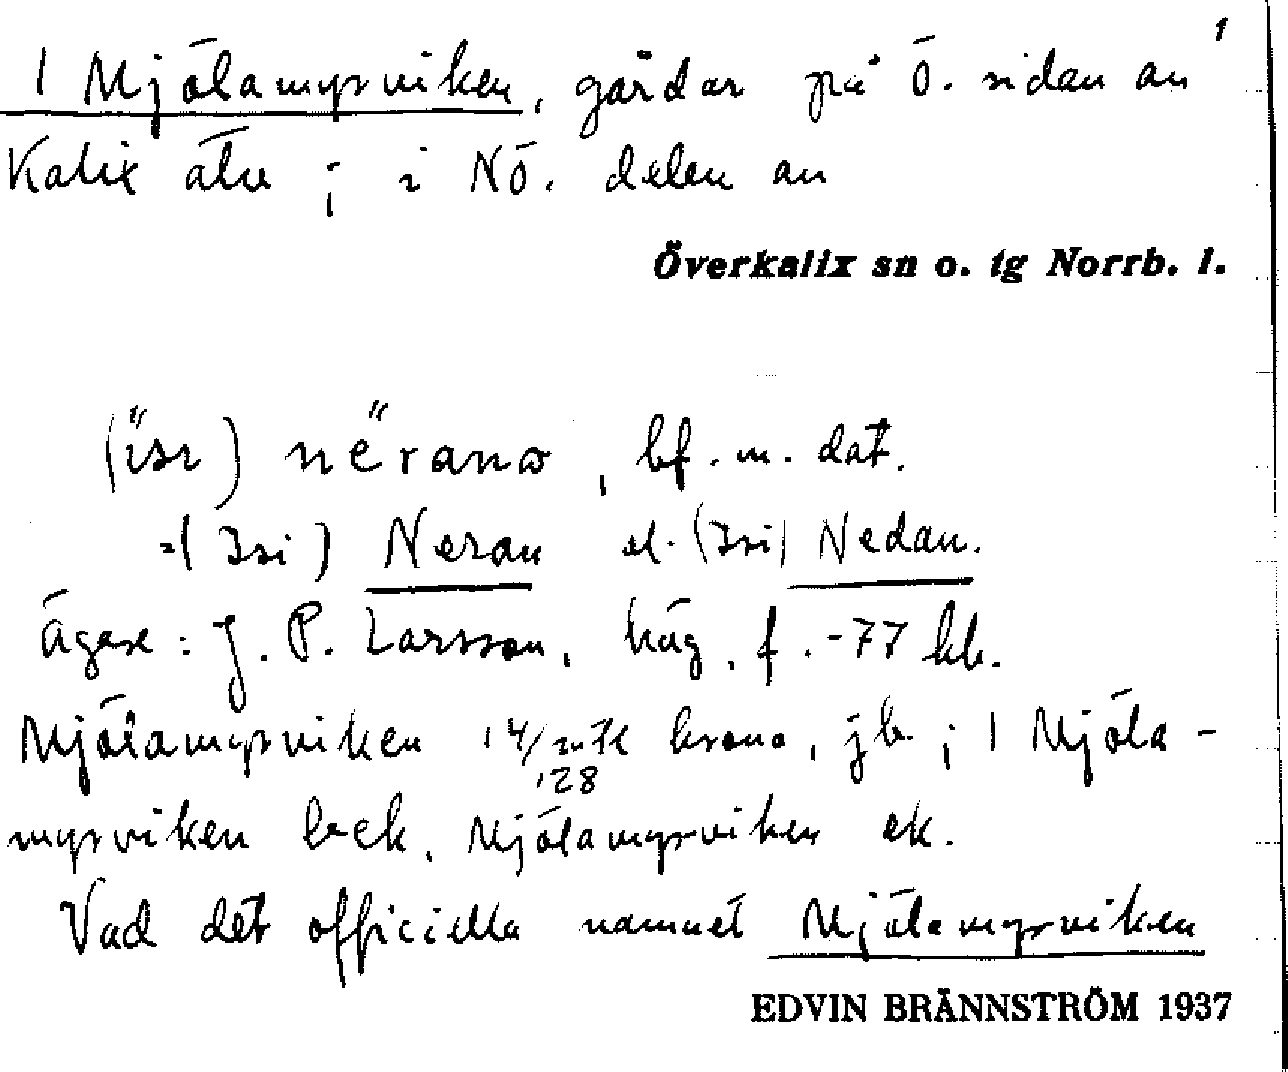 1
1 Mjölamyrviken, gårdar på Ö. sidan av
Kalix älv; i NÖ. delen av
Överkalix sn o. tg Norrb. l.
nërano, bf. m. dat.
=( Isi ) Neran el. (Isi) Nedan.
Ägare: J. P. Larsson, häg, f. -77 kb.
Mjölamyrviken 14/128 mtl krono, jb; 1 Mjöla-
myrviken beck, Mjölamyrviken ek.
Vad det officiella namnet Mjölamyrviken
EDVIN BRÄNNSTRÖM 1937